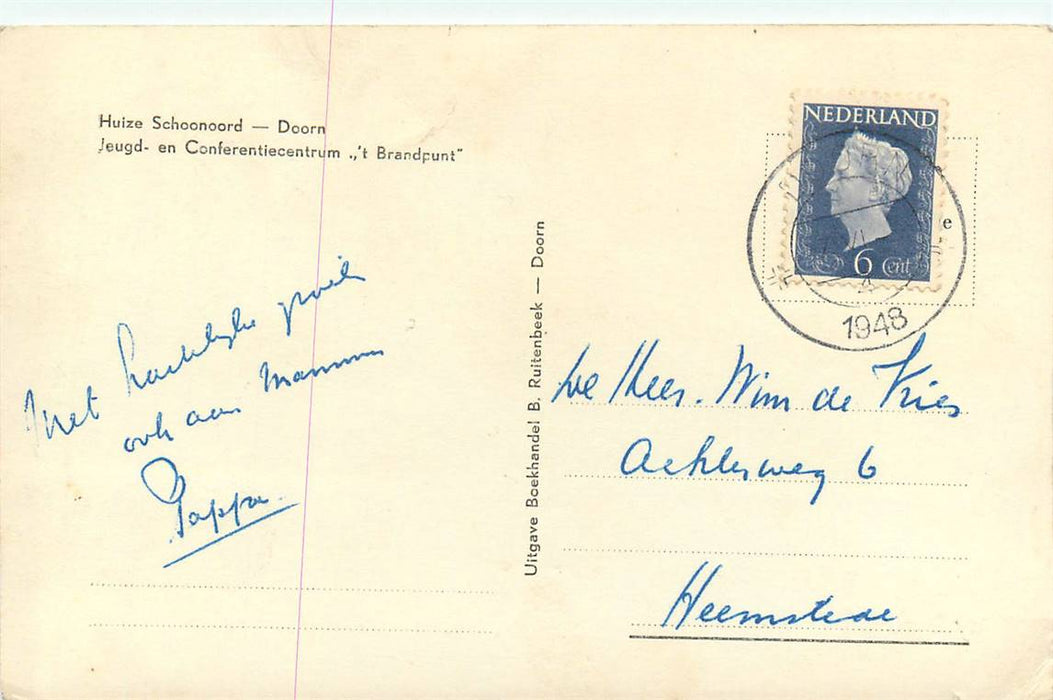 Huize Schoonoord — Doorn
Jeugd- en Conferentiecentrum „'t Brandpunt"
Met hartelijke groeten
ook aan Mamma
Pappa.
Uitgave Boekhandel B. Ruitenbeek — Doorn
NEDERLAND
6 Cent
e
1948
Heer. Wim de Vries
Achterweg 6
Heemstede